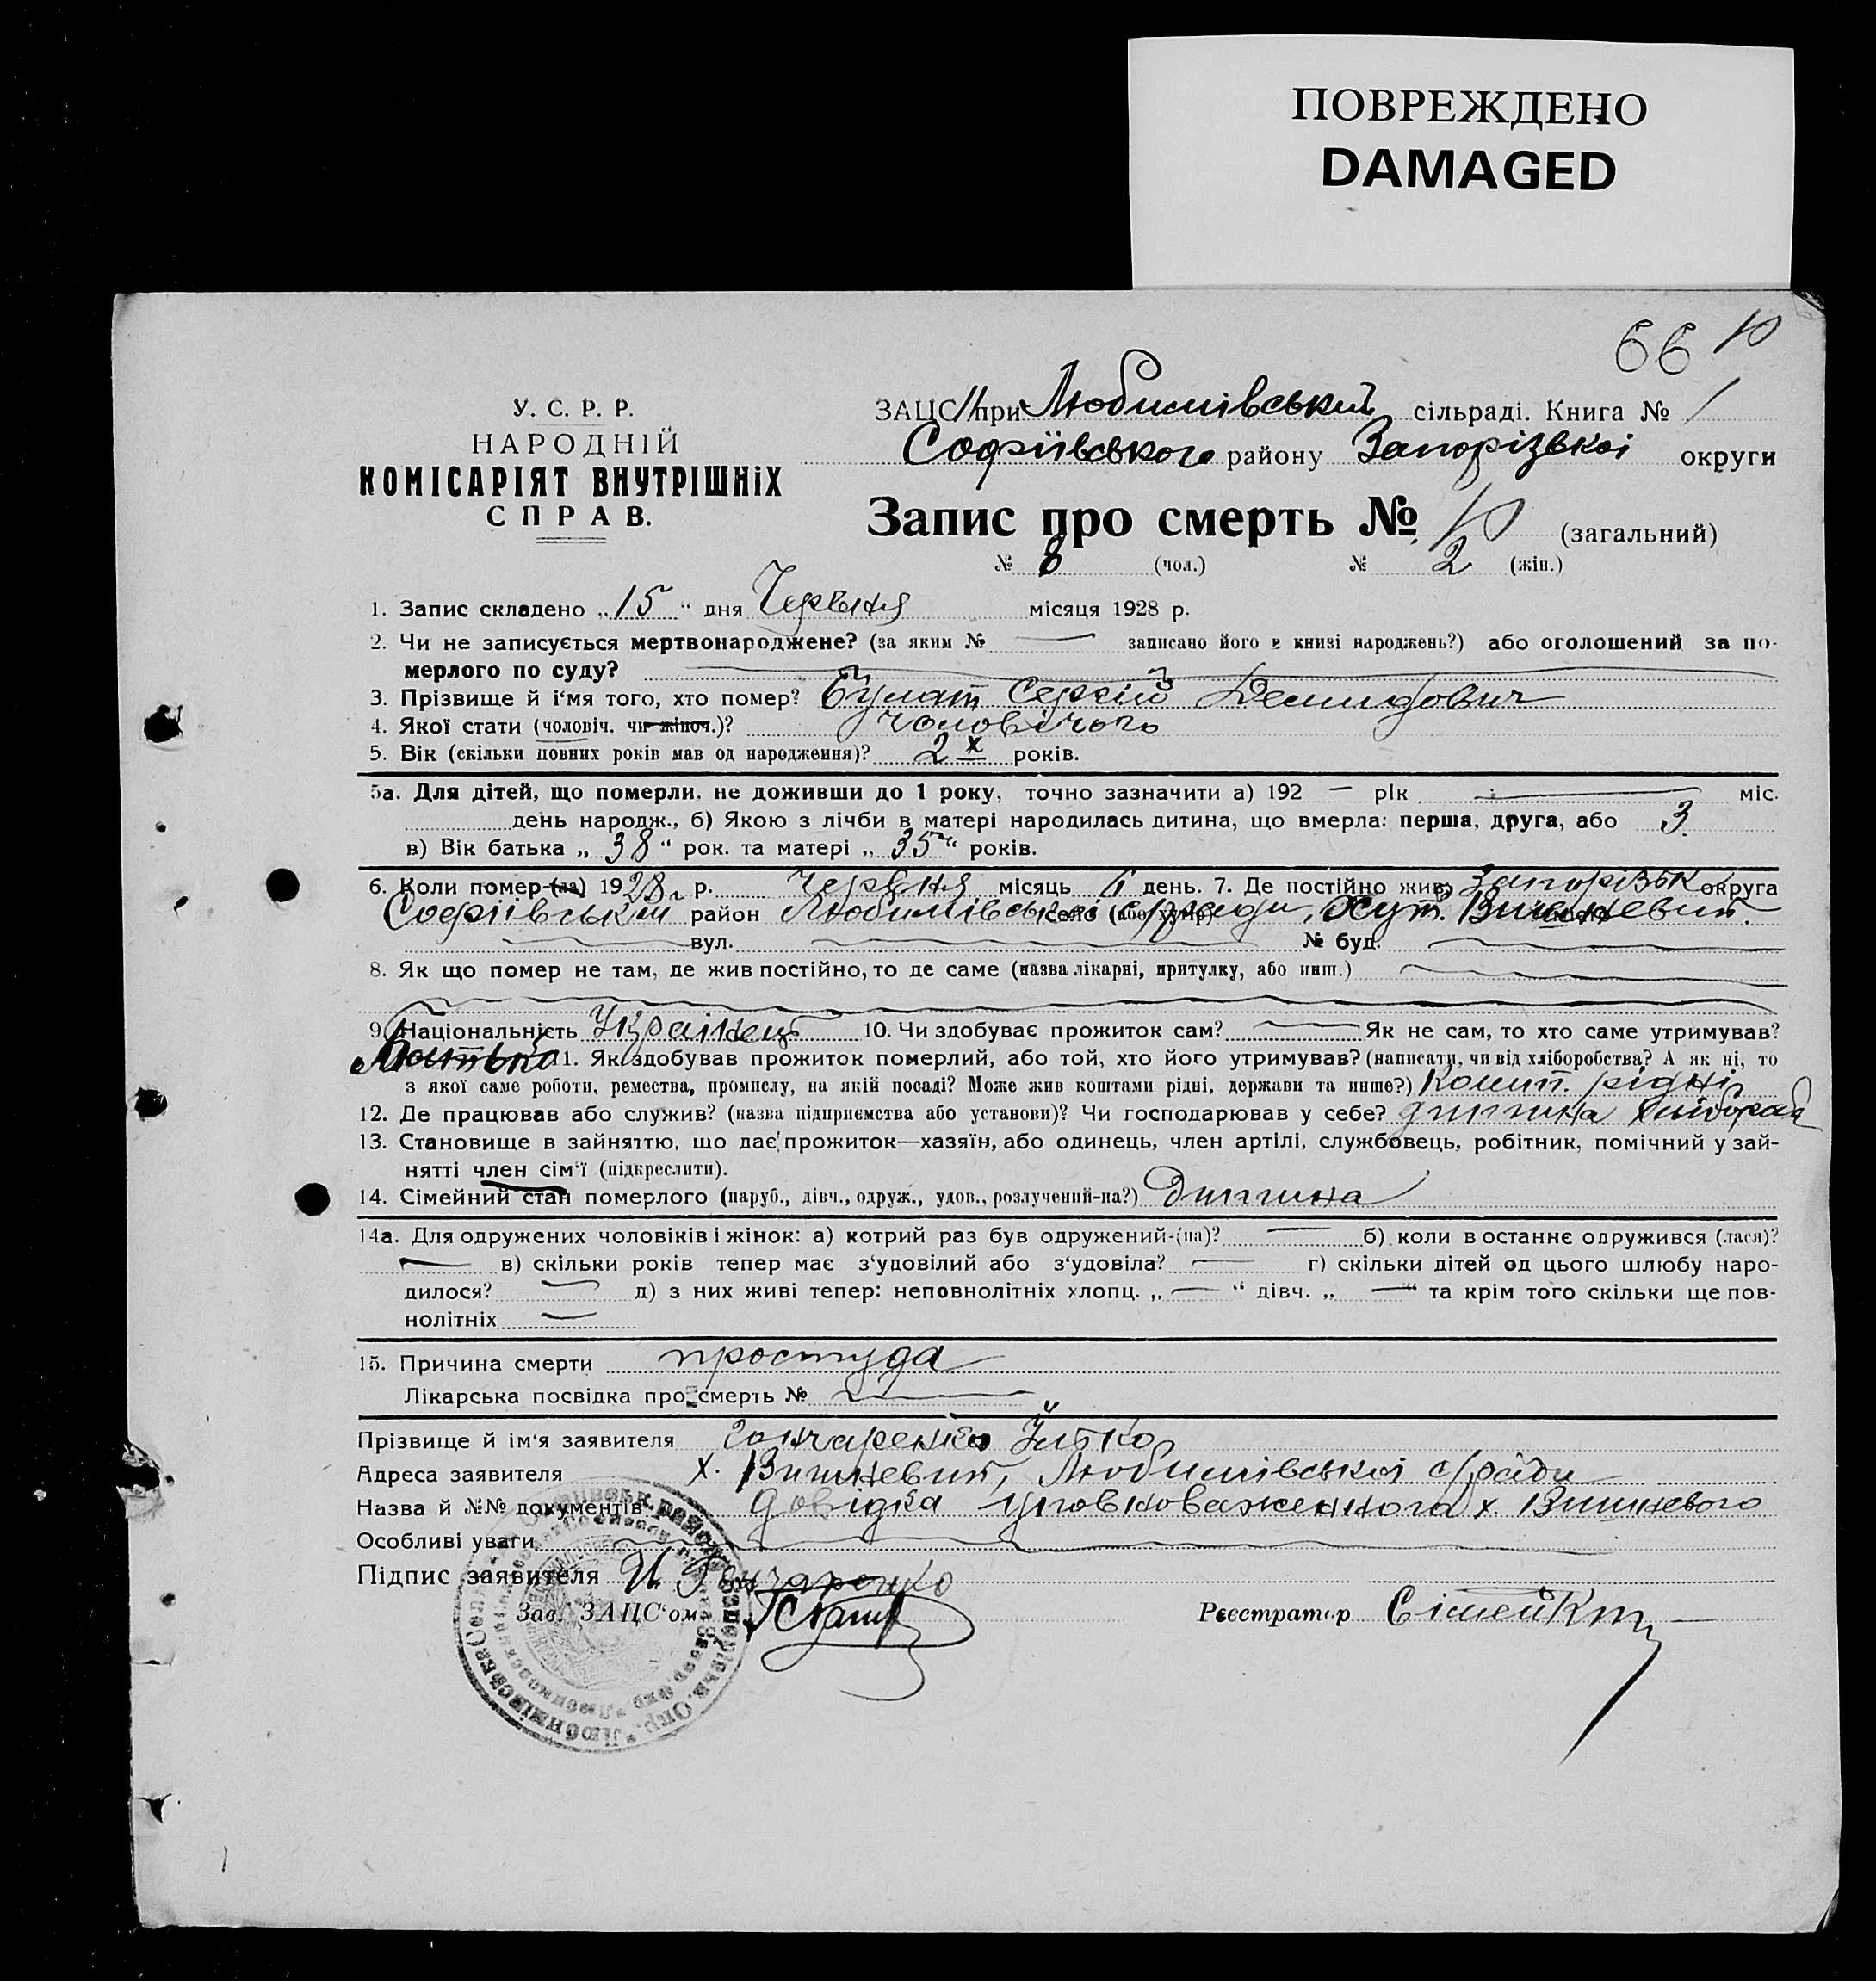 ПОВРЕЖДЕНО
DAMAGED
66 10
У. С. Р. Р.
НАРОДНІЙ
КОМІСАРІЯТ ВНУТРІШНІХ
СПРАВ.
ЗАЦС при Любимівський сільраді. Книга № 1
Софіївського району Запорізької округи
Запис про смерть № 10 (загальний)
№ 8 (чол.) № 2 (жін.)
1. Запис складено „15“ дня Червня місяця 1928 р.
2. Чи не записується мертвонароджене? (за яким № — записано його в книзі народжень?) або оголошений за по-
мерлого по суду?
3. Прізвище й і‘мя того, хто помер? Булат Сергій Демидович
4. Якої стати (чоловіч. чи жіноч.)? чоловічого
5. Вік (скільки повних років мав од народження)? 2х років.
5а. Для дітей, що померли, не доживши до 1 року, точно зазначити а) 192 — рік — міс.
день народж., б) Якою з лічби в матері народилась дитина, що вмерла: перша, друга, або 3
в) Вік батька „38“ рок. та матері „35“ років.
6. Коли помер-(ла) 1928 р. червня місяць день. 7. Де постійно жив, Запорізьк округа
Софіївський район Любимівської с/ради, Хут. Вишневий.
вул. № буд.
8. Як що помер не там, де жив постійно, то де саме (назва лікарні, притулку, або инш.)
9. Національність Українець 10. Чи здобував прожиток сам? — Як не сам, то хто саме утримував?
Батько 11. Як здобував прожиток померлий, або той, хто його утримував? (написати, чи від хліборобства? А як ні, то
з якої саме роботи, ремества, промислу, на якій посаді? Може жив коштами рідні, держави та инше?) Кошт. рідні
12. Де працював або служив? (назва підприємства або установи)? Чи господарював у себе? дитина
13. Становище в зайняттю, що дає прожиток—хазяїн, або одинець, член артілі, службовець, робітник, помічний у зай-
нятті член сім‘ї (підкреслити).
14. Сімейний стан померлого (паруб., дівч., одруж., удов., розлучений-на?) Дитина
14а. Для одружених чоловіків і жінок: а) котрий раз був одружений-(на)? — б) коли в останнє одружився (лася)?
— в) скільки років тепер має з‘удовілий або з‘удовіла? — г) скільки дітей од цього шлюбу наро-
дилося? — д) з них живі тепер: неповнолітніх хлопц. „—“ дівч. „—“ та крім того скільки ще пов-
нолітніх —
15. Причина смерти простуда
Лікарська посвідка про смерть № —
Прізвище й ім‘я заявителя Гончаренко
Адреса заявителя х. Вишневий, Любимівської с/ради
Назва й №№ документів Довідка уповноваженного х. Вишневого
Особливі уваги
Підпис заявителя И. Гончаренко
Зав. ЗАЦС‘ом Реєстратор